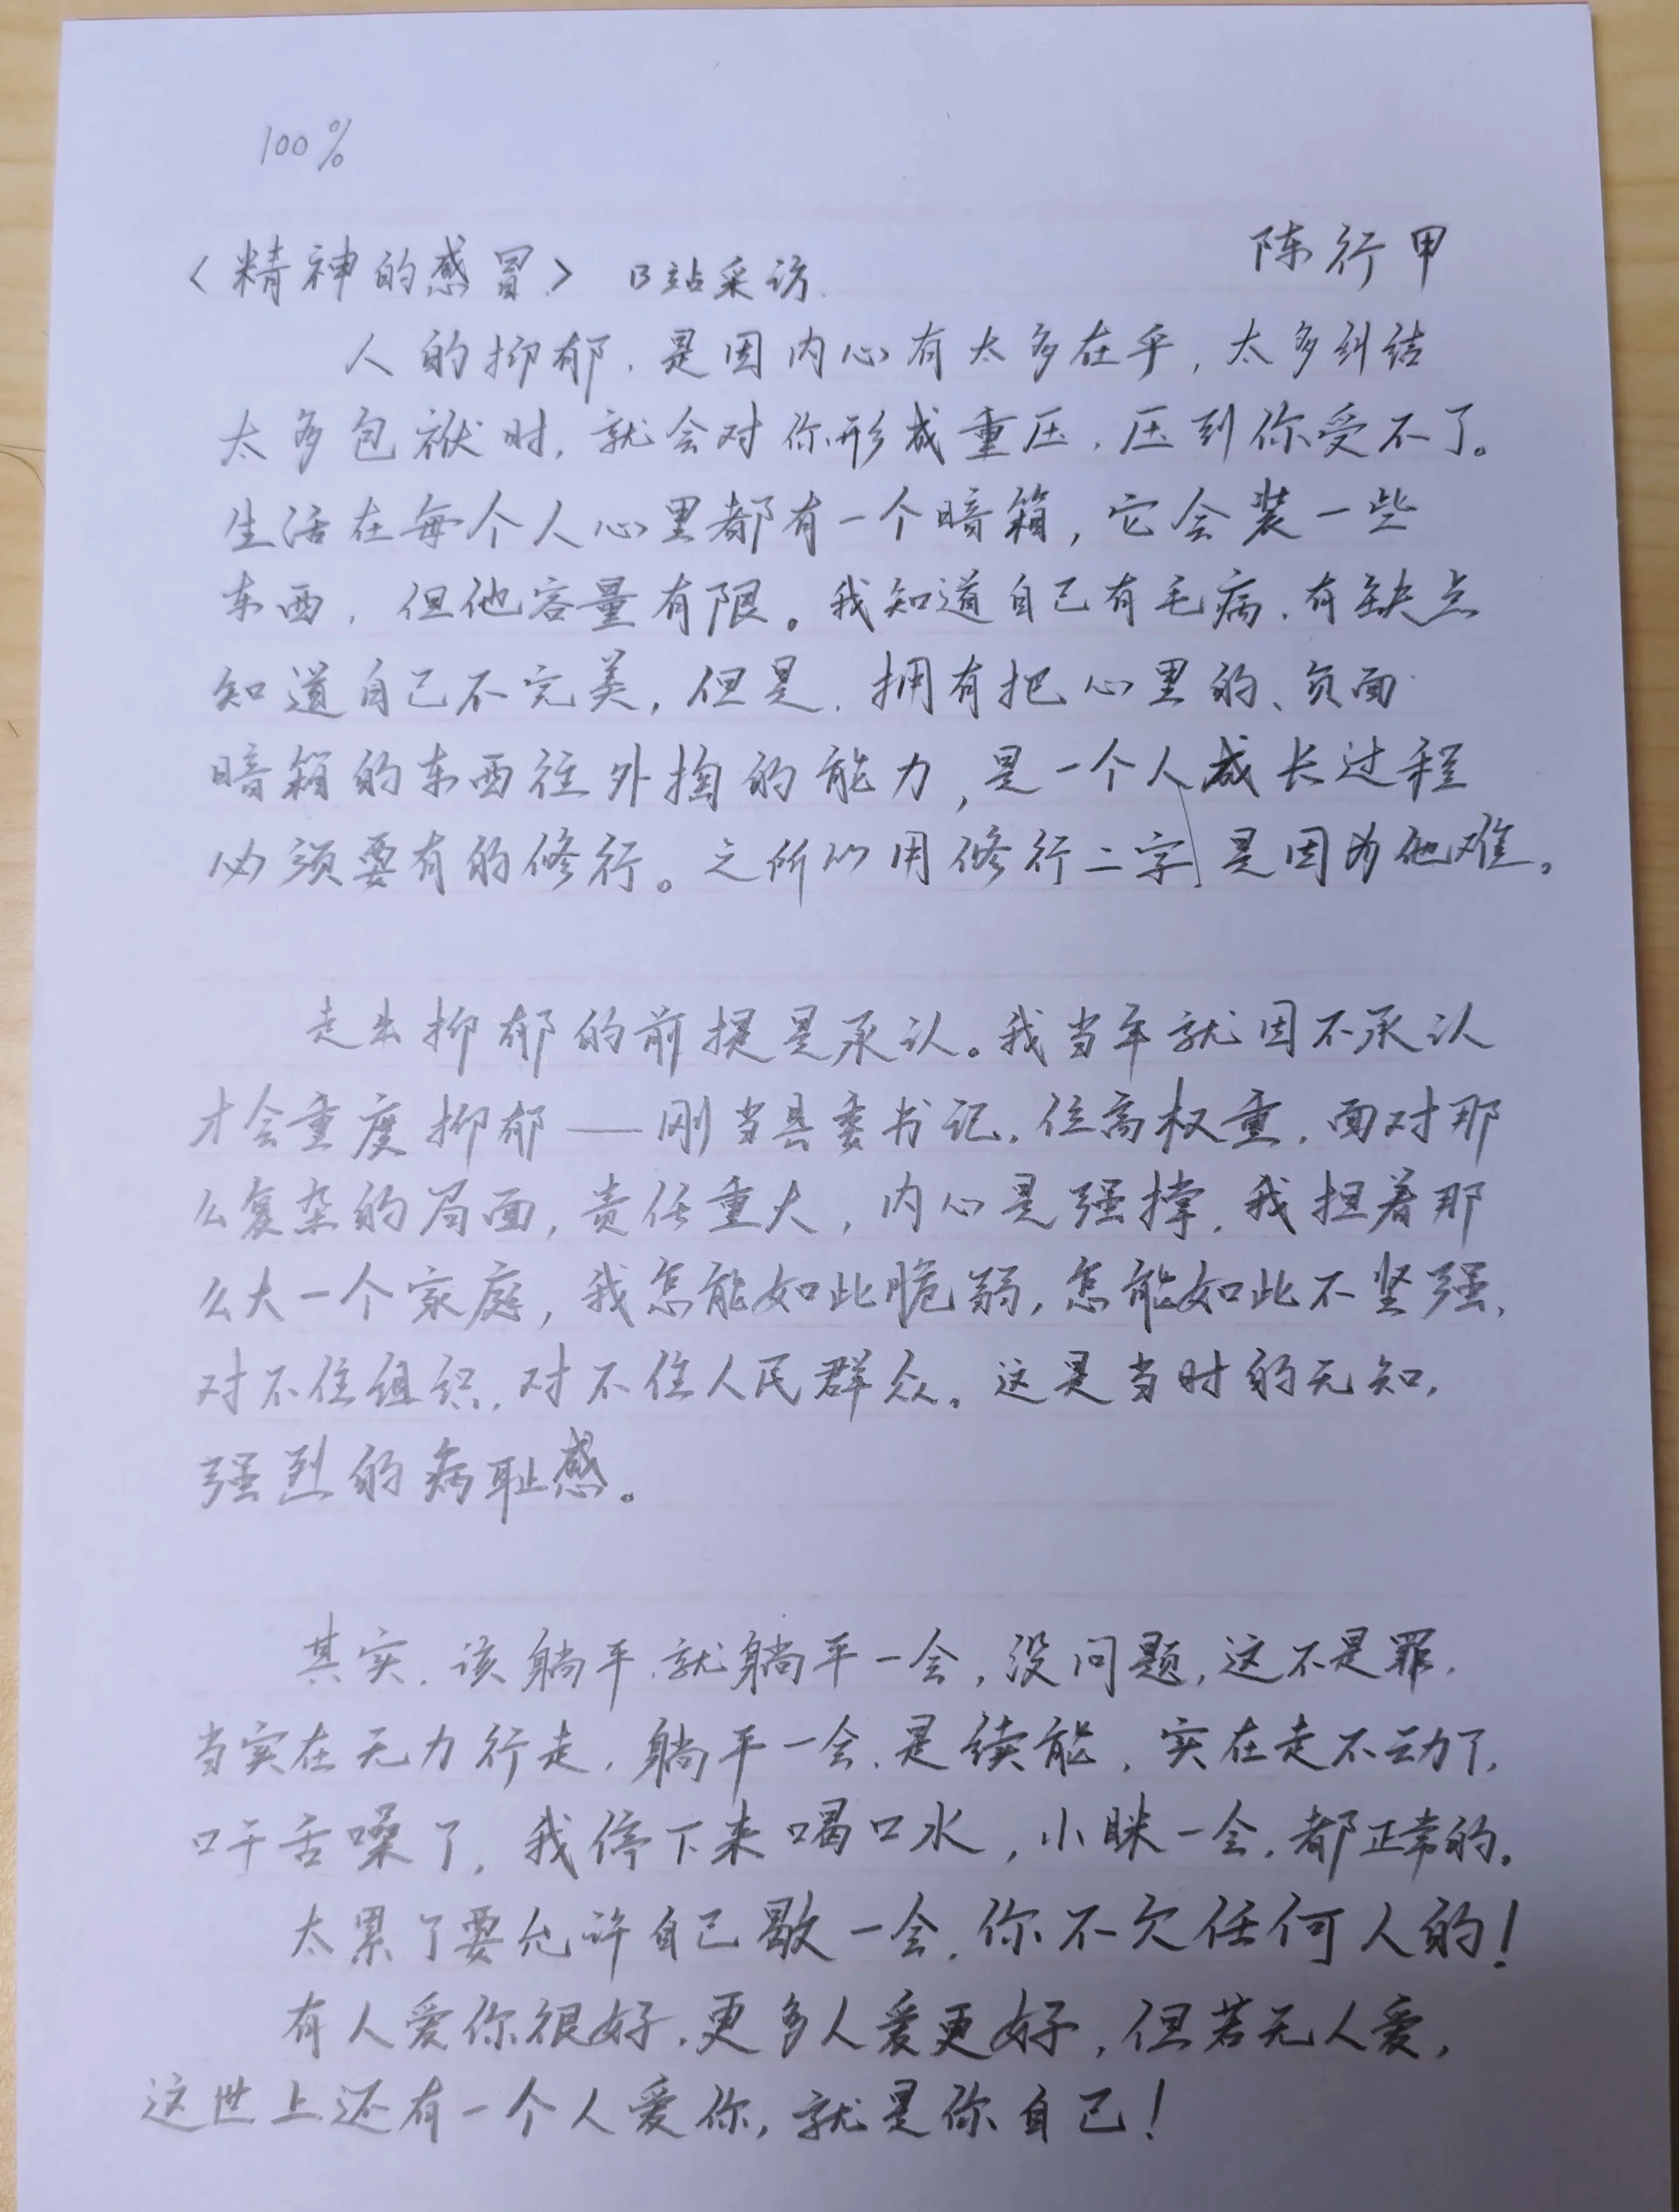 100%
<精神的感冒> B站采访. 陈行甲
人的抑郁，是因内心有太多在乎，太多纠结
太多包袱时，就会对你形成重压，压到你受不了。
生活在每个人心里都有一个暗箱，它会装一些
东西，但他容量有限。我知道自己有毛病，有缺点
知道自己不完美，但是，拥有把心里的、负面
暗箱的东西往外掏的能力，是一个人成长过程
必须要有的修行。之所以用修行二字，是因为他难。
走出抑郁的前提是承认。我当年就因不承认
才会重度抑郁——刚当县委书记，位高权重，面对那
么复杂的局面，责任重大，内心是强撑，我担着那
么大一个家庭，我怎能如此脆弱，怎能如此不坚强，
对不住组织，对不住人民群众。这是当时的无知，
强烈的病耻感。
其实，该躺平，就躺平一会，没问题，这不是罪，
当实在无力行走，躺平一会，是续能，实在走不动了，
口干舌噪了，我停下来喝口水，小眯一会，都正常的。
太累了要允许自己歇一会，你不欠任何人的！
有人爱你很好，更多人爱更好，但若无人爱，
这世上还有一个人爱你，就是你自己！